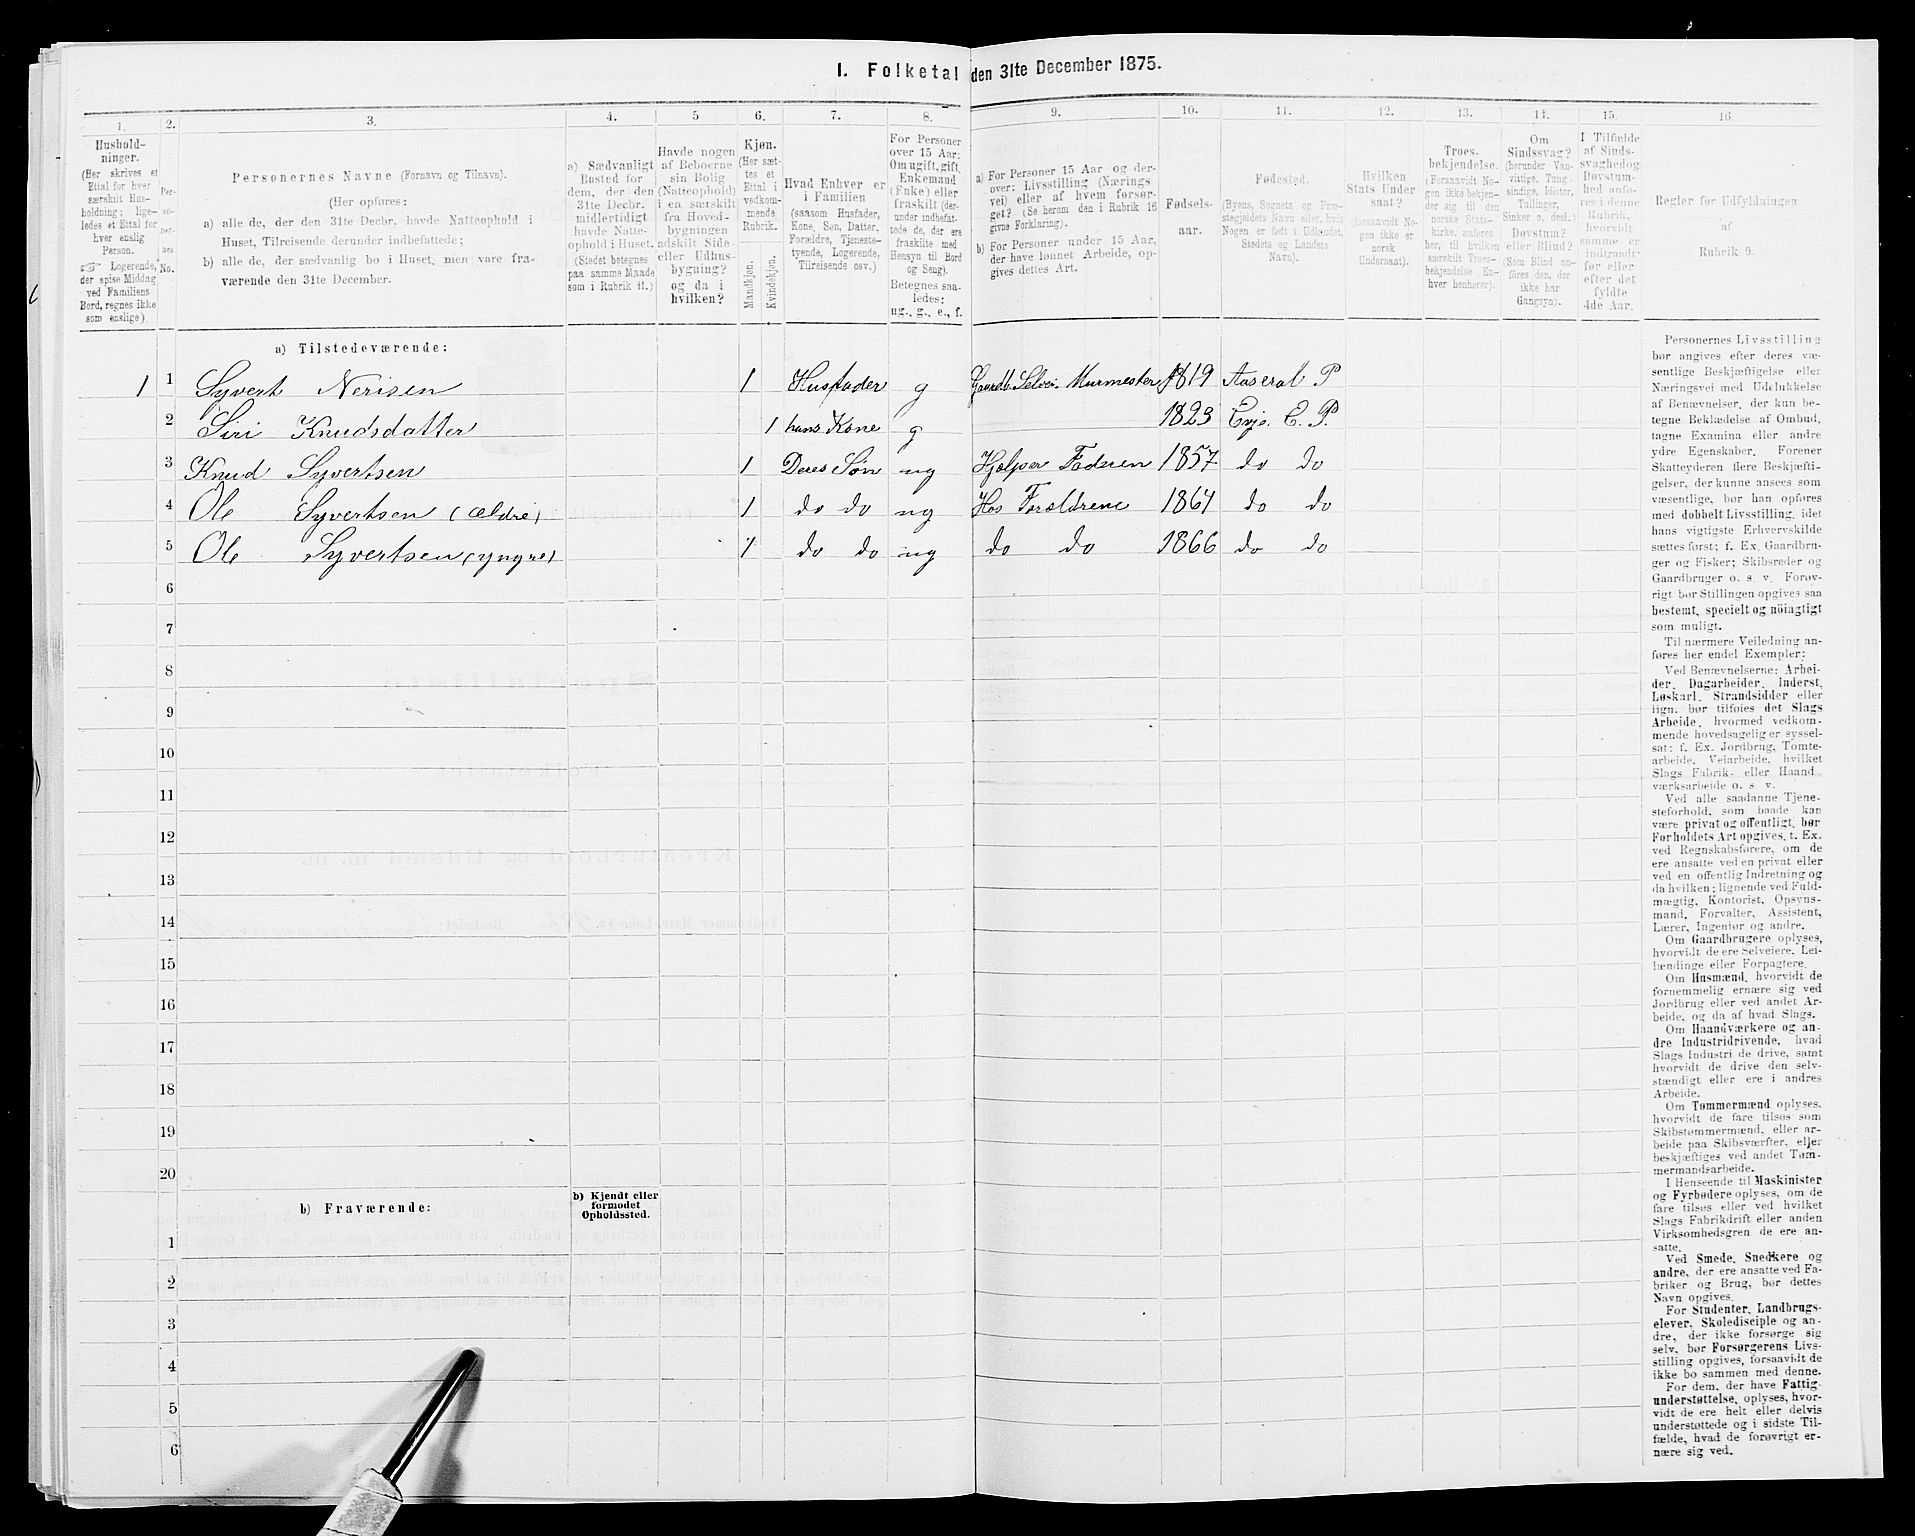 I. Folketal den 31te December 1875.
1. 2. 3. 4. 5 6. 7. 8. 9. 10. 11. 12. 13. 14. 15. 16
Hushold-
ninger.
(Her skrives et
Ettal for hver
særskilt Hus-
holdning; lige-
ledes et Ettal for
hver enslig
Person.
☞ Logerende,
der spise Middag
ved Familiens
Bord, regnes ikke
som enslige)
Per-
so-
ner-
nes
No.
Personernes Navne (Fornavn og Tilnavn).
(Her opføres:
a) alle de, der den 31te Decbr. havde Natteophold i
Huset, Tilreisende derunder indbefattede;
b) alle de, der sædvanlig bo i Huset, men vare fra-
værende den 31te December.
a) Sædvanligt
Bosted for
dem, der den
31te Decbr.
midlertidigt
havde Natte-
ophold i Huset.
(Stedet betegnes
paa samme Maade
som i Rubrik 11.)
Havde nogen
af Beboerne
sin Bolig
(Natteophold)
i en særskilt
fra Hoved-
bygningen
adskilt Side-
eller Udhus-
bygning?
og da i
hvilken?
Kjøn.
(Her sæt-
tes et
Ettal i
vedkom-
mende
Rubrik.
Mandkjøn.
Kvindekjøn.
Hvad Enhver er
i Familien
(saasom Husfader,
Kone, Søn, Datter,
Forældre, Tjeneste-
tyende, Logerende,
Tilreisende osv.)
For Personer
over 15 Aar:
Om ugift, gift,
Enkemand
(Enke) eller
fraskilt (der-
under indbefat-
tede de, der ere
fraskilte med
Hensyn til Bord
og Seng).
Betegnes saa-
ledes:
ug., g., e., f.
a) For Personer 15 Aar og der-
over: Livsstilling (Nærings
vei) eller af hvem forsør-
get? (Se herom den i Rubrik 16
givne Forklaring).
b) For Personer under 15 Aar,
der have lønnet Arbeide, op-
gives dettes Art.
Fødsels-
aar.
Fødested.
(Byens, Sognets og Præ-
stegjeldets Navn eller, hvis
Nogen er født i Udlandet,
Stedets og Landets
Navn).
Hvilken
Stats Under-
saat?
(forsaavidt No-
gen ikke er
norsk
Undersaat).
Troes-
bekjendelse.
(Forsaavidt No-
gen ikke bekjen-
der sig til den
norske Stats-
kirke, anføres
her, til hvilken
særskilt Troes-
bekjendelse En-
hver henhører).
Om
Sindssvag?
(herunder Van-
vittige, Tung-
sindige, Idioter,
Tullinger,
Sinker o. desl.)
Døvstum?
eller Blind?
(Som Blind an-
føres den, der
ikke har
Gangsyn).
I Tilfælde
af Sinds-
svaghed og
Døvstum-
hed anfø-
res i denne
Rubrik,
hvorvidt
samme er
indtraadt
før eller
efter det
fyldte
4de Aar.
Regler for Udfyldningen
af
Rubrik 9.
a) Tilstedeværende:
1 1 Syvert Nerisen 1 Husfader g Gaardb. Selvei. Murmester 1819 Aaseral P
2 Siri Knudsdatter 1 hans Kone g 1823 Evje. E. P.
3 Knud Syvertsen 1 Deres Søn ug Hjelper Faderen 1857 do do
4 Ole Syvertsen (ældre) 1 do do ug Hos Forældrene 1861 do do
5 Ole Syvertsen (yngre) 1 do do ug do do 1866 do do
6
7
8
9
10
11
12
13
14
15
16
17
18
19
20
b) Fraværende:
b) Kjendt eller
formodet
Opholdssted.
1
2
3
4
5
6
Personernes Livsstilling
bør angives efter deres væ-
sentlige Beskjæftigelse eller
Næringsvei med Udelukkelse
af Benævnelser, der kun be-
tegne Beklædelse af Ombud,
tagne Examina eller andre
ydre Egenskaber. Forener
Skatteyderen flere Beskjæfti-
gelser, der kunne ansees som
væsentlige, bør han opføres
med dobbelt Livsstilling, idet
hans vigtigste Erhvervskilde
sættes først; f. Ex. Gaardbru-
ger og Fisker; Skibsreder og
Gaardbruger o. s. v. Forøv-
rigt bør Stillingen opgives saa
bestemt, specielt og nöiagtigt
som muligt.
Til nærmere Veiledning an-
føres her endel Exempler:
Ved Benævnelserne: Arbei-
der, Dagarbeider, Inderst,
Løskarl, Strandsidder eller
lign. bør tilføies det Slags
Arbeide, hvormed vedkom-
mende hovedsagelig er syssel-
sat; f. Ex. Jordbrug, Tomte-
arbeide, Veiarbeide, hvilket
Slags Fabrik- eller Haand-
værksarbeide o. s. v.
Ved alle saadanne Tjene-
steforhold, som baade kan
være privat og offentligt, bør
Forholdets Art opgives, t. Ex.
ved Regnskabsførere, om de
ere ansatte ved en privat eller
ved en offentlig Indretning og
da hvilken; lignende ved Fuld-
mægtig, Kontorist, Opsyns-
mand, Forvalter, Assistent,
Lærer, Ingeniør og andre.
Om Gaardbrugere oplyses,
hvorvidt de ere Selveiere, Lei-
lændinge eller Forpagtere.
Om Husmænd, hvorvidt de
fornemmelig ernære sig ved
Jordbrug eller ved andet Ar-
beide, og da af hvad Slags.
Om Haandværkere og an-
dre Industridrivende, hvad
Slags Industri de drive, samt
hvorvidt de drive den selv-
stændigt eller ere i andres
Arbeide.
Om Tømmermænd oplyses,
hvorvidt de fare tilsøs som
Skibstømmermænd, eller ar-
beide paa Skibsværfter, eller
beskjæftiges ved andet Tøm-
mermandsarbeide.
I Henseende til Maskinister
og Fyrbødere oplyses, om de
fare tilsøs eller ved hvilket
Slags Fabrikdrift eller anden
Virksomhedsgren de ere an-
satte.
Ved Smede, Snedkere og
andre, der ere ansatte ved Fa-
briker og Brug, bør dettes
Navn opgives.
For Studenter, Landbrugs-
elever, Skoledisciple og an-
dre, der ikke forsørge sig
selv, bør Forsørgerens Livs-
stilling opgives, forsaavidt de
ikke bo sammen med denne.
For dem, der have Fattig-
understøttelse, oplyses, hvor-
vidt de ere helt eller delvis
understøttede og i sidste Til-
fælde, hvad de forøvrigt er-
nære sig ved.